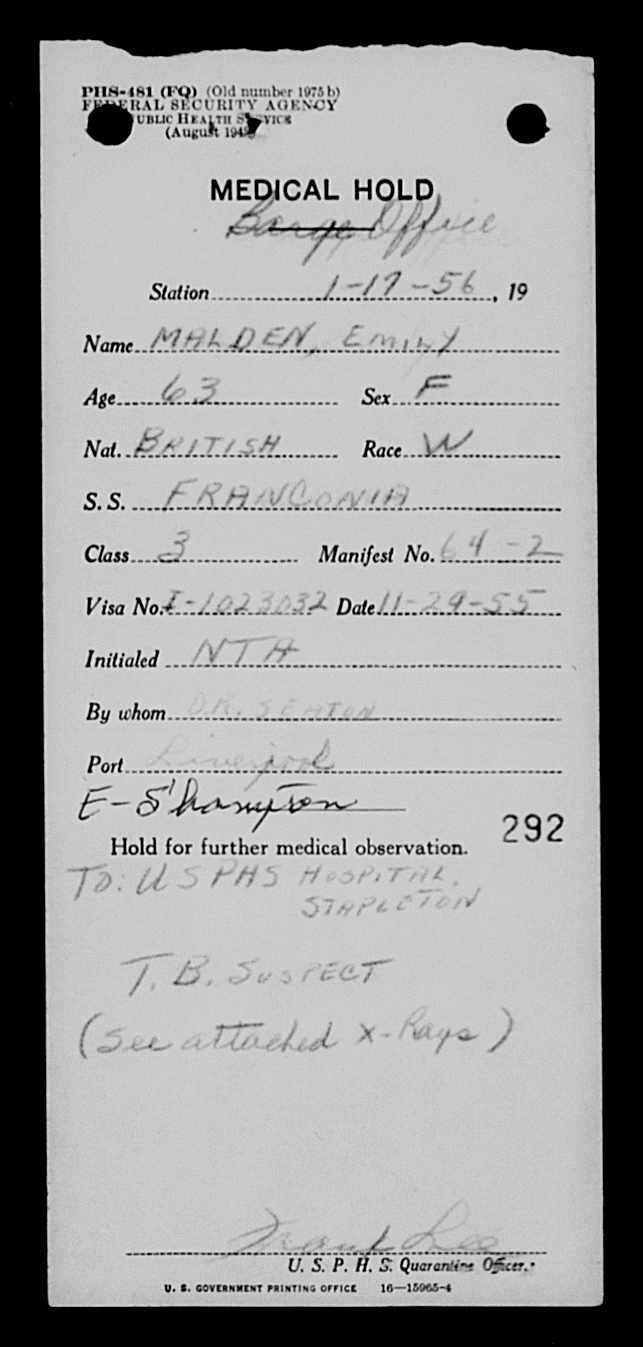 PHS-481 (FQ) (Old number 1975 b)
FEDERAL SECURITY AGENCY
PUBLIC HEALTH SERVICE
(August 194
MEDICAL HOLD
Barge Office
Station 1-17-56, 19
Name MALDEN, EMILY
Age 63 Sex F
Nat. BRITISH Race W
S. S. FRANCONIA
Class 3 Manifest No. 64-2
Visa No. I-1023032 Date 11-29-55
Initialed NTA
By whom D.K. SEATON
Port Liverpool
E-S'hampton
Hold for further medical observation. 292
TO: U S PHS HOSPITAL,
STAPLETON
T.B. SUSPECT
(See attached X-Rays)
Frank Lee
U. S. P. H. S. Quarantine Officer.
U. S. GOVERNMENT PRINTING OFFICE 16—15965-4